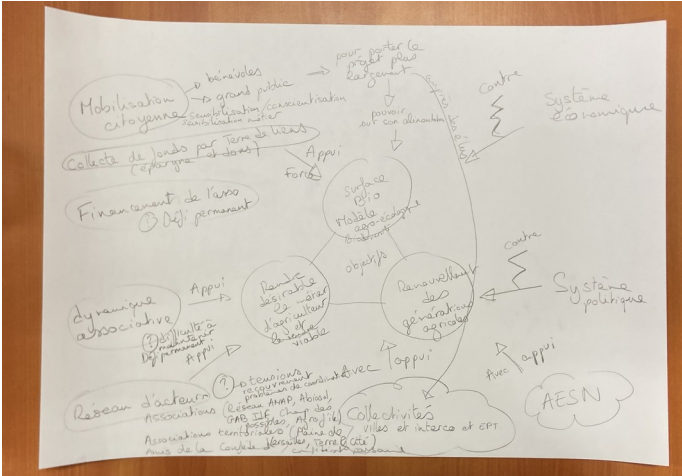 Mobilisation
citoyenne
bénévoles
grand public
sensibilisation/conscientisation
sensibilisation métier
pour porter le
projet plus
largement
auprès des élus
pouvoir
sur son alimentation
contre
Système
économique
Collecte de fonds par Terre de Liens
(épargne et dons)
Appui
Force
Financement de l'asso
Défi permanent
Surface
Bio
Modèle
agro-écologique
objectifs
Rendre
désirable
le métier
d'agriculteur
et
viable
Renouvellement
des
générations
agricoles
contre
Système
politique
dynamique
associative
Appui
? difficulté à
maintenir
Défi permanent
Appui
Réseau d'acteurs
? tensions
recouvrement
problèmes de coordination
Avec appui
Avec appui
AESN
Associations (Réseau AMAP, Abiosol,
GAB IdF, Champ des
possibles, Agrofile)
Associations territoriales (Plaine de
Versailles, Terre & Cité)
Amis de la Conf
Collectivités
villes et interco et EPT